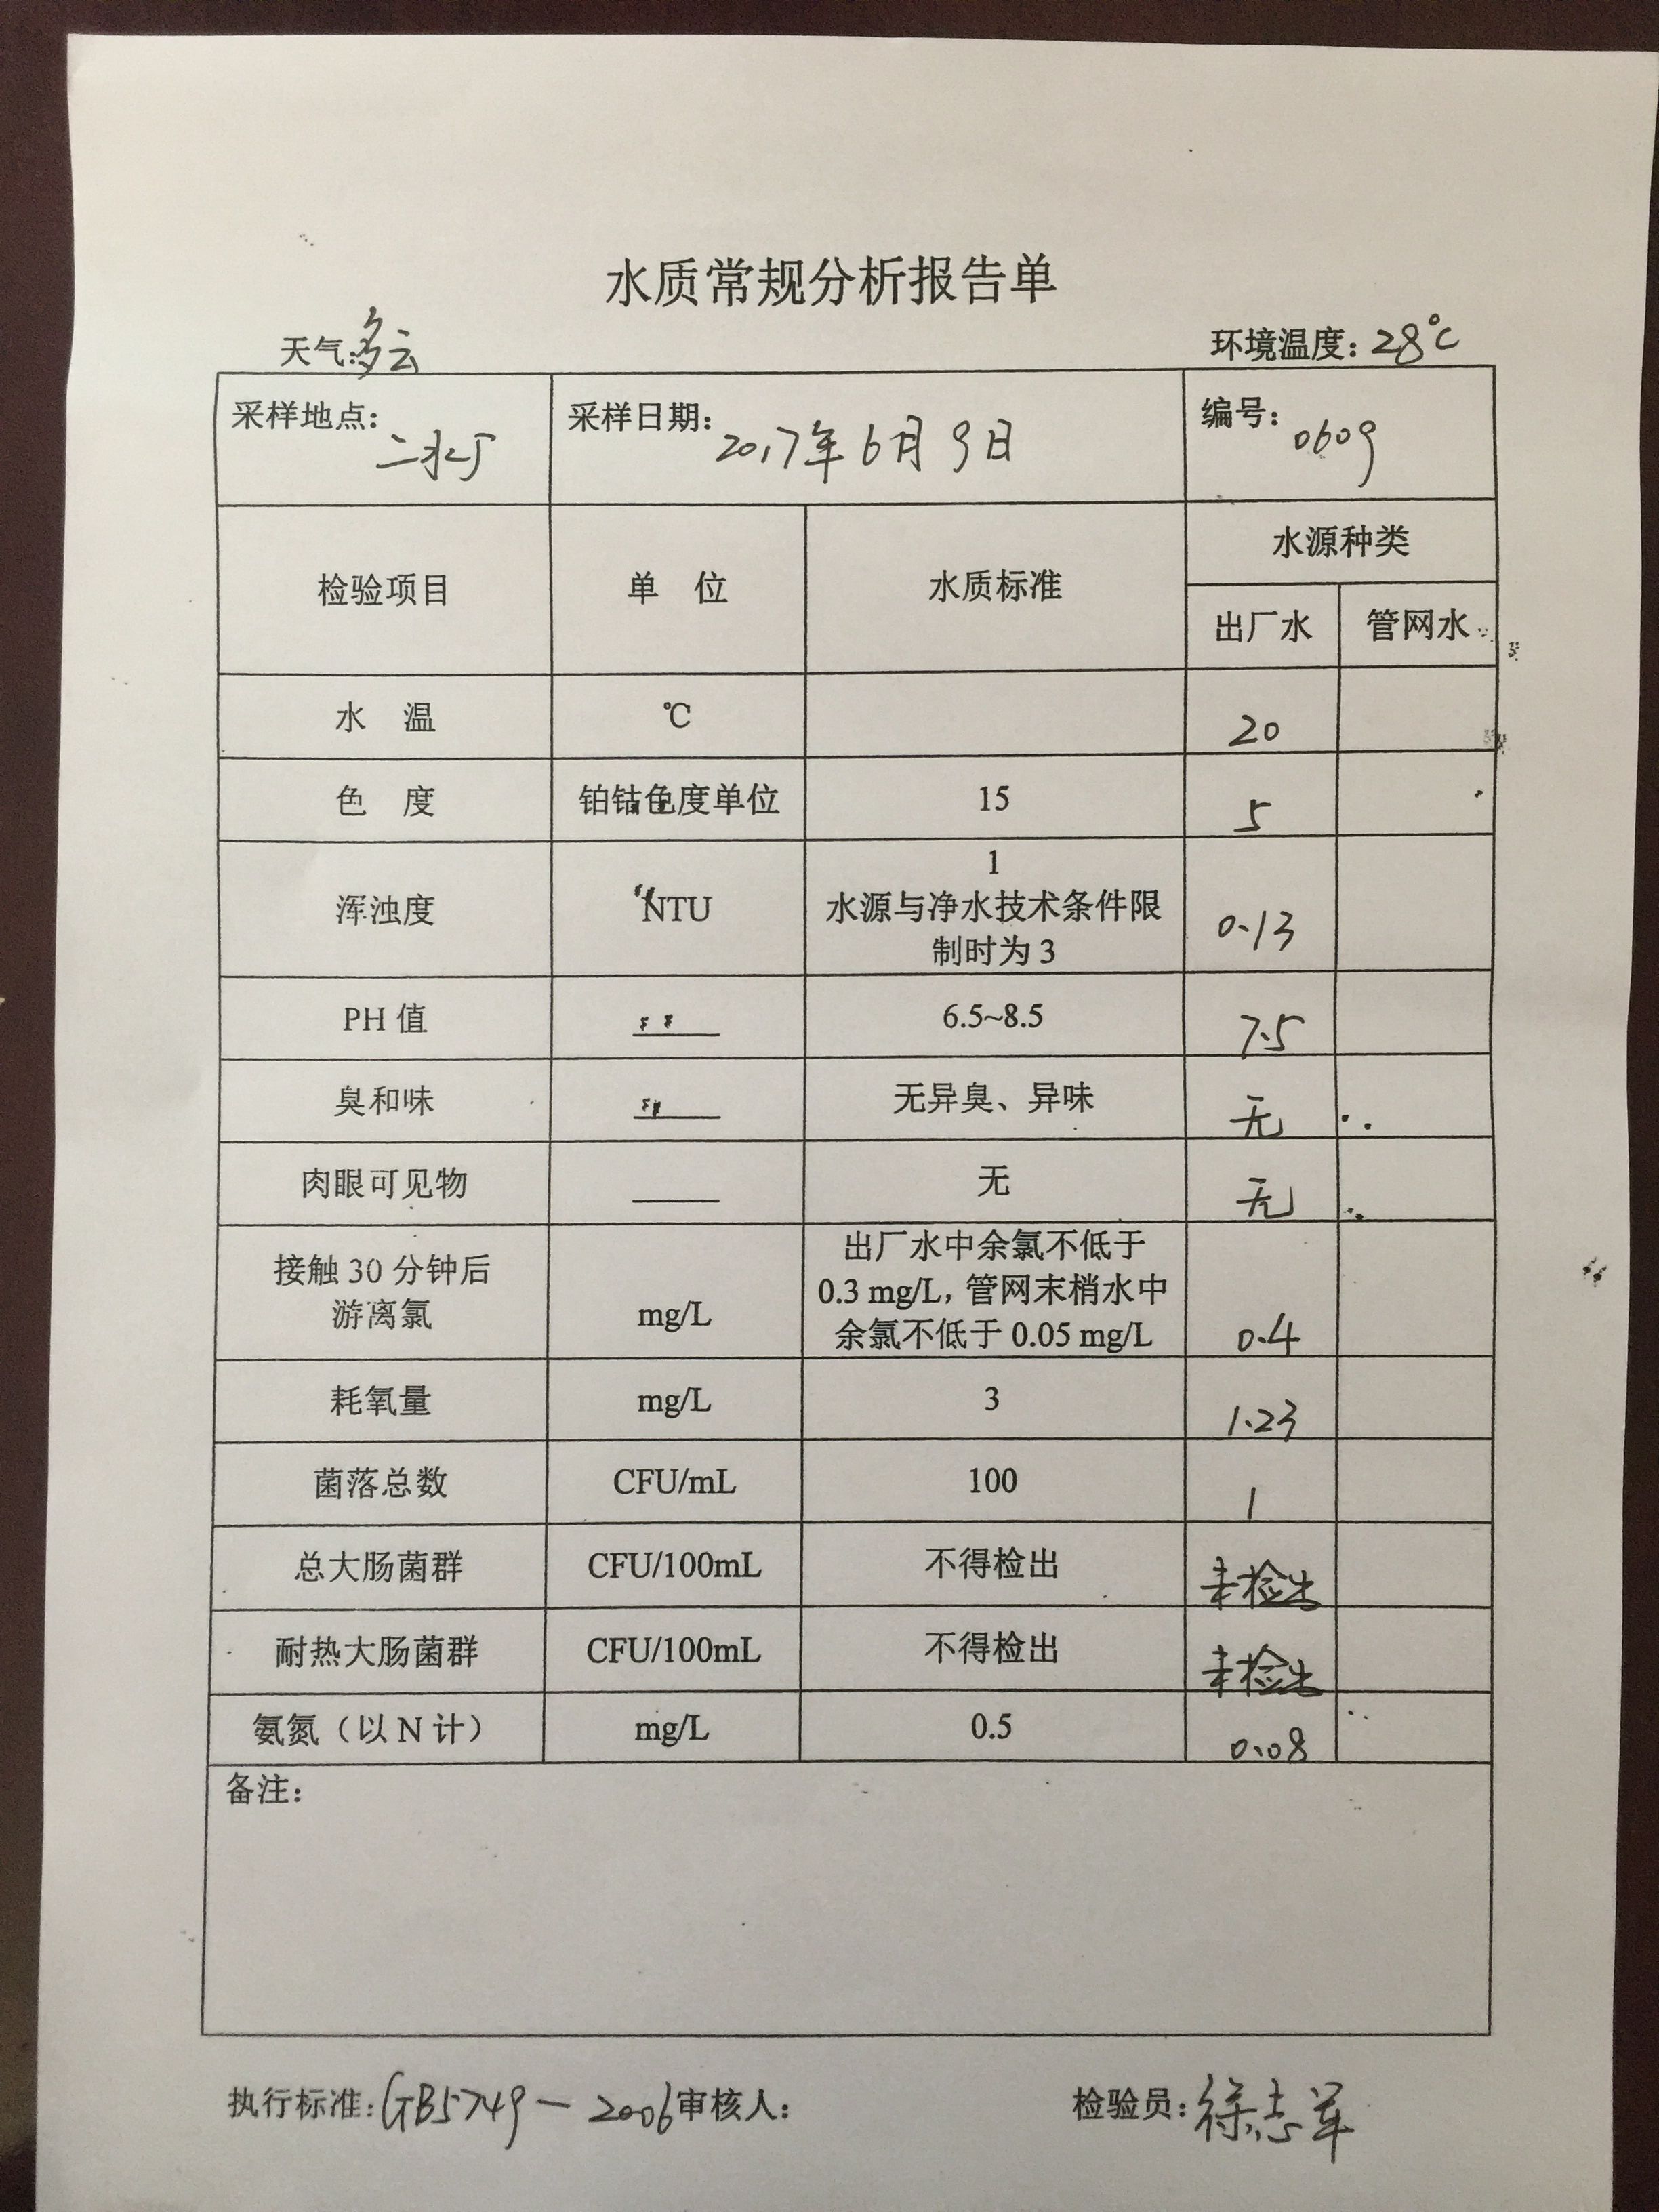 水质常规分析报告单
天气:多云 环境温度：28℃
采样地点：二水厂 采样日期：2017年6月9日 编号：0609
检验项目 单 位 水质标准 水源种类
出厂水 管网水
水 温 ℃ 20
色 度 铂钴色度单位 15 5
浑浊度 NTU 1 0.13
水源与净水技术条件限
制时为3
PH值 —— 6.5~8.5 7.5
臭和味 —— 无异臭、异味 无
肉眼可见物 —— 无 无
接触30分钟后
游离氯 mg/L 出厂水中余氯不低于
0.3 mg/L，管网末梢水中
余氯不低于0.05 mg/L 0.4
耗氧量 mg/L 3 1.23
菌落总数 CFU/mL 100 1
总大肠菌群 CFU/100mL 不得检出 未检出
耐热大肠菌群 CFU/100mL 不得检出 未检出
氨氮（以N计） mg/L 0.5 0.08
备注：
执行标准：GB5749—2006 审核人： 检验员：徐志军